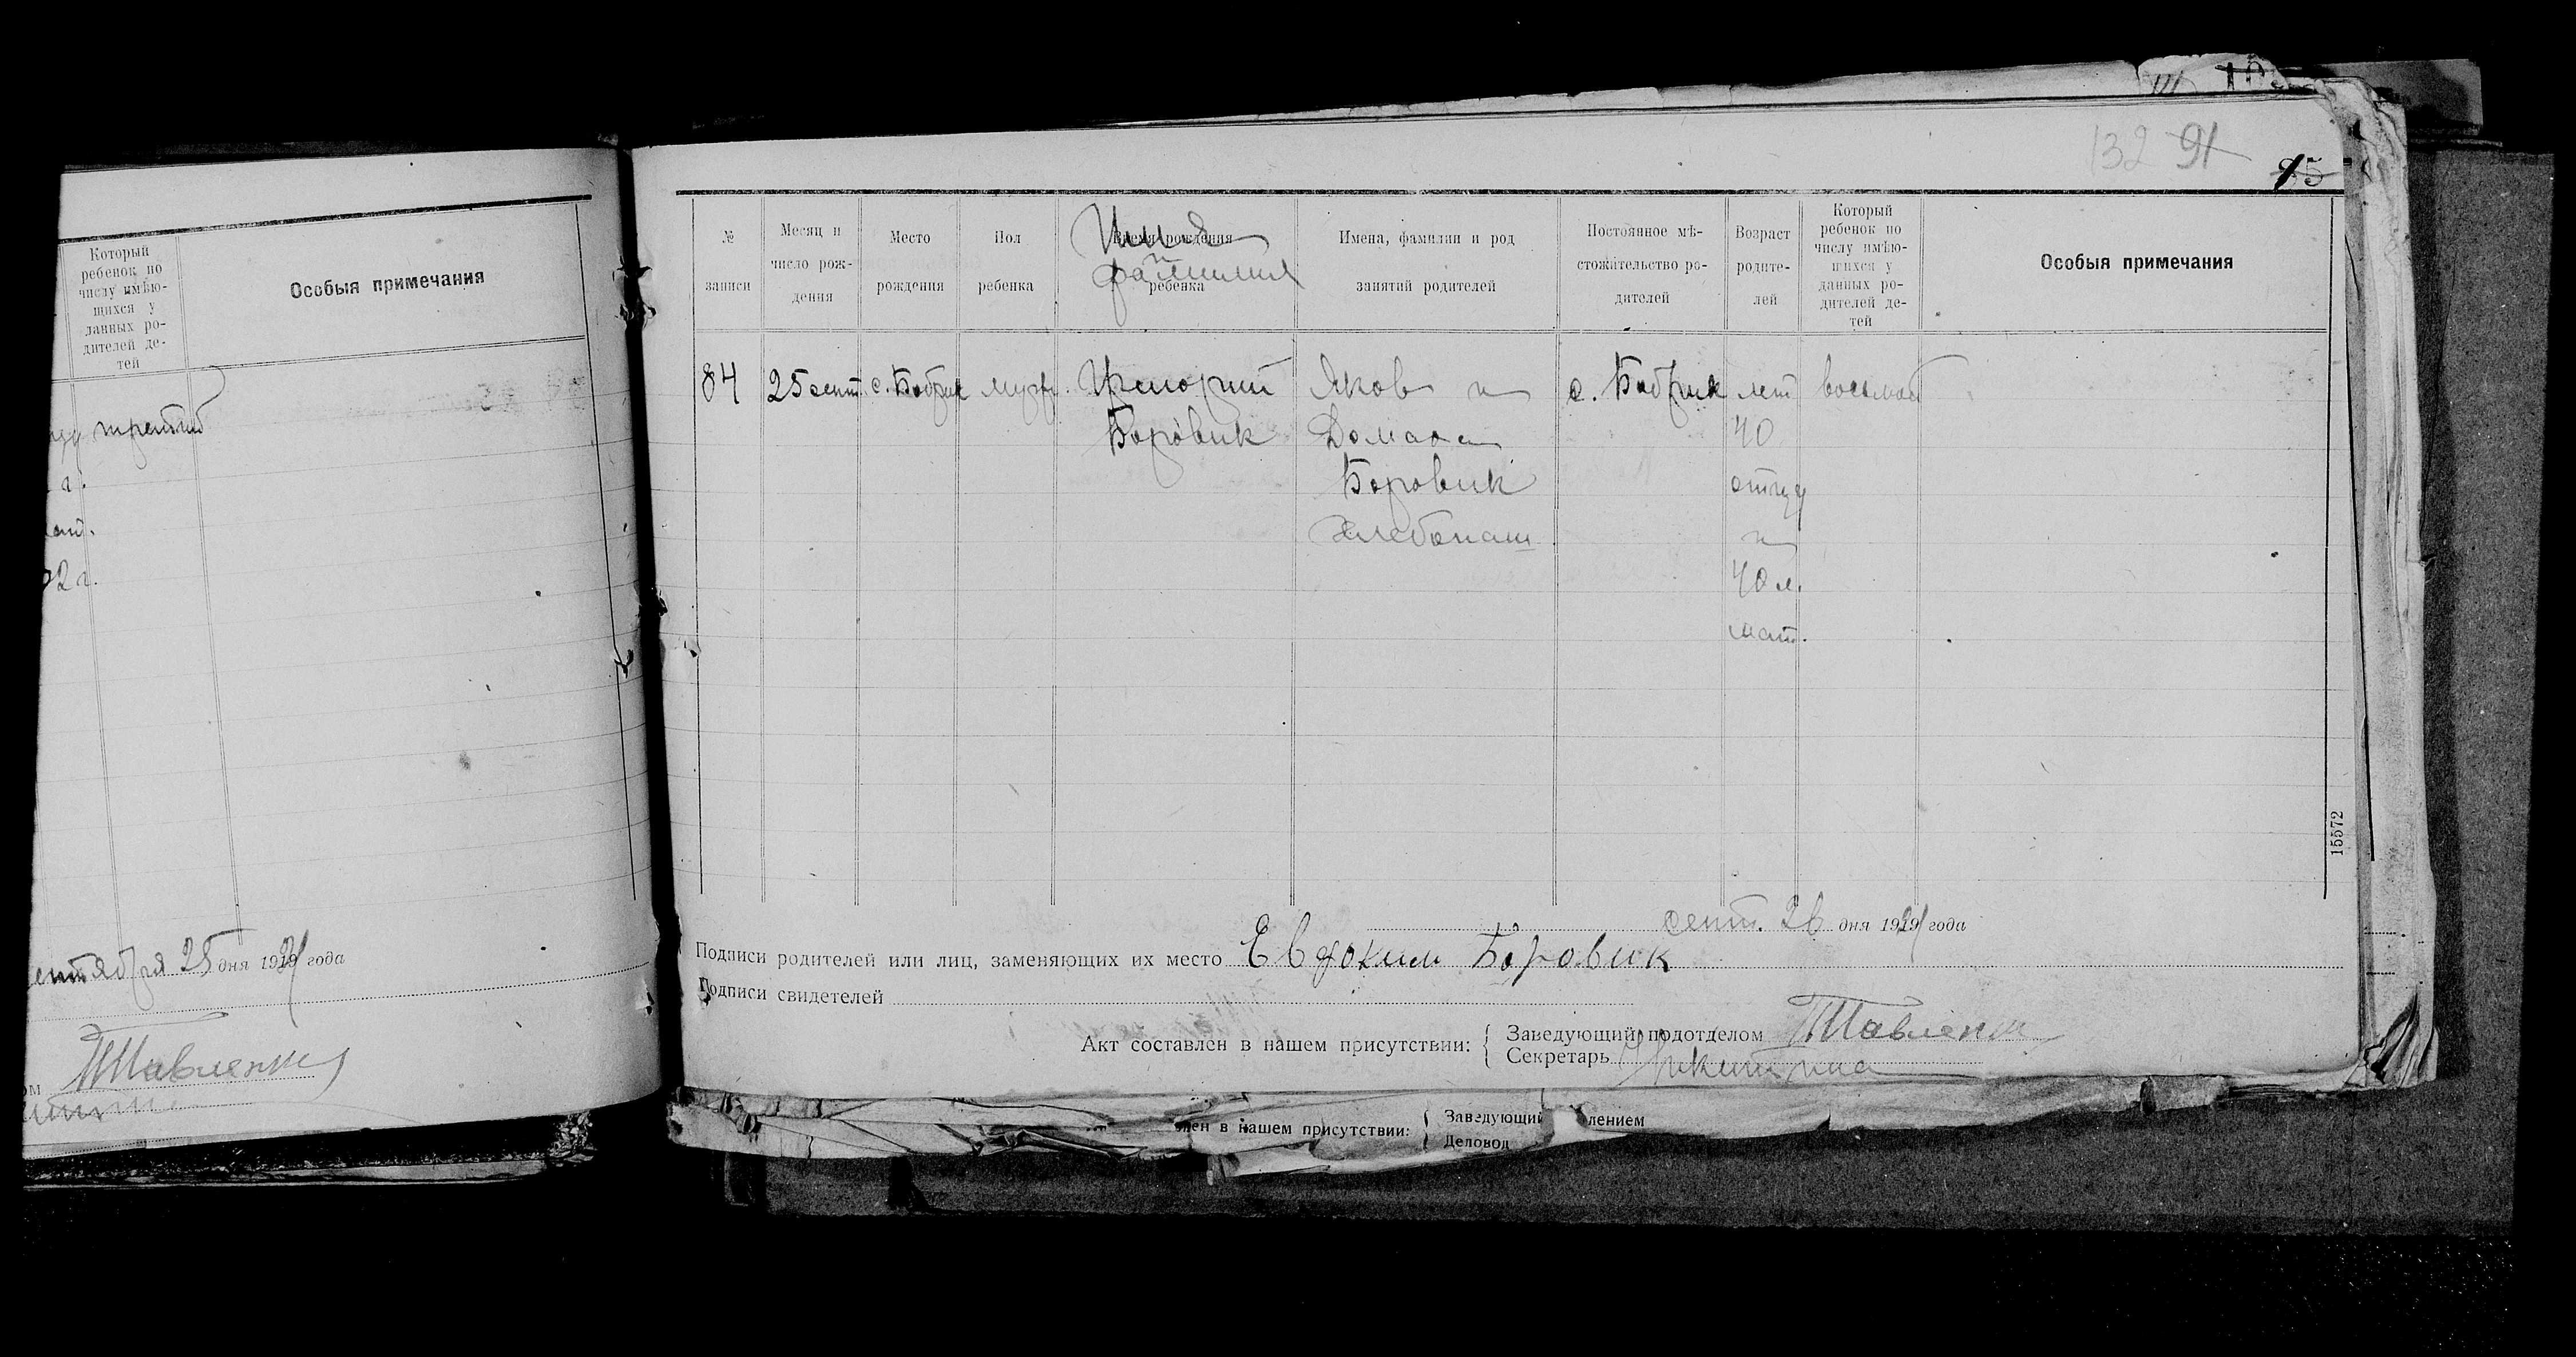 132 91
15
Который
ребенок по
числу имѣю-
щихся у
данных ро-
дителей де-
тей
Особыя примечания
третий
г.
2 г.
сентября 25 дня 192 года
№
записи
Месяц и
число рож-
дения
Место
рождения
Пол
ребенка
Время рождения
ребенка
Имя
и
фамилия
Имена, фамилии и род
занятий родителей
Постоянное мѣ-
стожительство ро-
дителей
Возраст
родите-
лей
Который
ребенок по
числу имѣю-
щихся у
данных ро-
дителей де-
тей
Особыя примечания
84
25 сент.
с. Бобрик
муж.
Григорий
Боровик
Яков и
Домаха
Боровик
Хлебопаш
с. Бобрик
лет
40
отцу
и
40 л.
мат.
восьмой
15572
сент. 26 дня 192 года
Подписи родителей или лиц, заменяющих их место Евдоким Боровик
Подписи свидетелей
Акт составлен в нашем присутствии:
Заведующий подотделом
Секретарь Никитина
лен в нашем присутствии:
Заведующий лением
Деловод